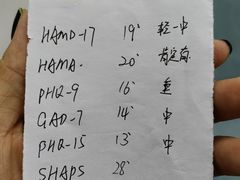 HAMD-17 19' 轻-中
HAMA. 20' 肯定有
PHQ-9 16' 重
GAD-7 14' 中
PHQ-15 13' 中
SHAPS 28'